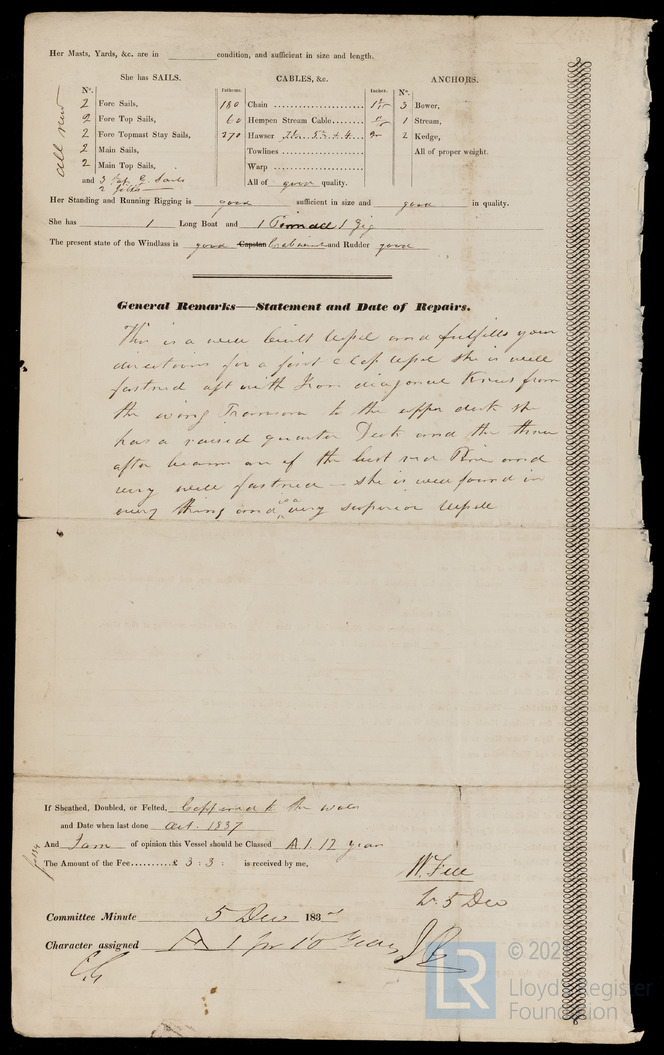 Her Masts, Yards, &c. are in ________ condition, and sufficient in size and length.
She has SAILS. CABLES, &c. ANCHORS.
N°. Fathoms. Inches. N°.
all new
2 Fore Sails, 180 Chain 3 Bower,
2 Fore Top Sails, 60 Hempen Stream Cable 1 Stream,
2 Fore Topmast Stay Sails, 270 Hawser 2 Kedge,
2 Main Sails, Towlines All of proper weight.
2 Main Top Sails, Warp
and 3 Sails All of good quality.
Her Standing and Running Rigging is good sufficient in size and good in quality.
She has 1 Long Boat and 1 Pinnace 1 Gig
The present state of the Windlass is good Capstan and Rudder good
General Remarks—Statement and Date of Repairs.
This is a well built Vessel and fulfills your
directions for a first Class Vessel she is well
fastned aft with Iron diagonal Knees from
the wing Transom to the upper deck she
has a raised quarter Deck and the three
after beams are of the best red Pine and
very well fastned – she is well found in
every thing and is a very superior Vessell
If Sheathed, Doubled, or Felted, Coppered to the wales
and Date when last done Oct. 1837
And I am of opinion this Vessel should be Classed A.1. 12 years
The Amount of the Fee..........£ 3 : 3 : is received by me,
5 Dec
Committee Minute 5 Dec 183
Character assigned A 1 for 10 Years
© 202
Lloyd's Register
Foundation
LR